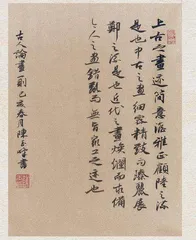 上古之畫迹簡意澹雅正顧陸之流
是也中古之畫細密精致而臻麗展
鄭之流是也近代之畫煥爛而求備
今人之畫錯亂而無旨衆工之迹也
古人論畫一則己亥春月陳玉書